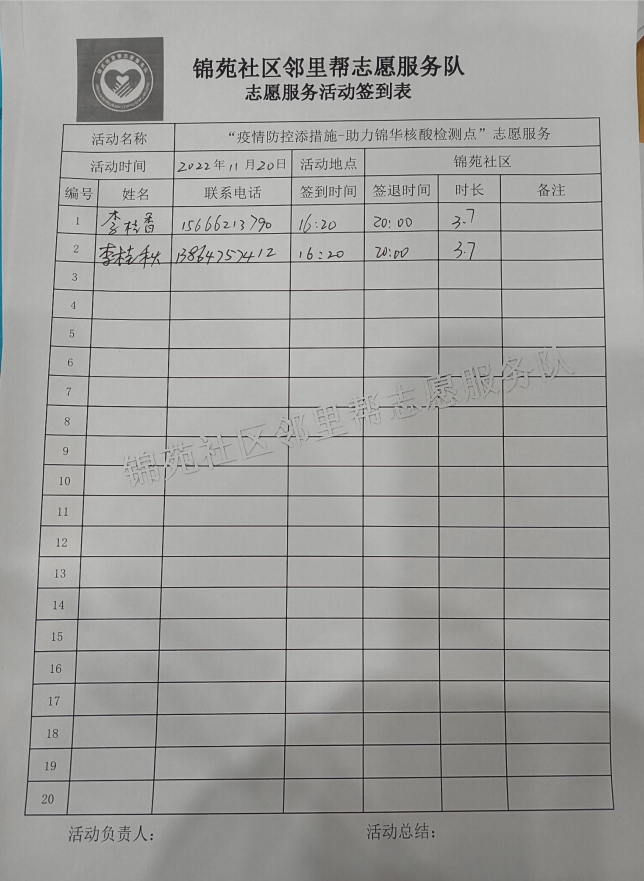 锦苑社区邻里帮志愿服务队
志愿服务活动签到表
活动名称 “疫情防控添措施-助力锦华核酸检测点”志愿服务
活动时间 2022年11月20日 活动地点 锦苑社区
编号 姓名 联系电话 签到时间 签退时间 时长 备注
1 李桂香 15666213790 16:20 20:00 3.7
2 李桂秋 13864757412 16:20 20:00 3.7
3
4
5
6
7
8
9
10
11
12
13
14
15
16
17
18
19
20
锦苑社区邻里帮志愿服务队
活动负责人: 活动总结: